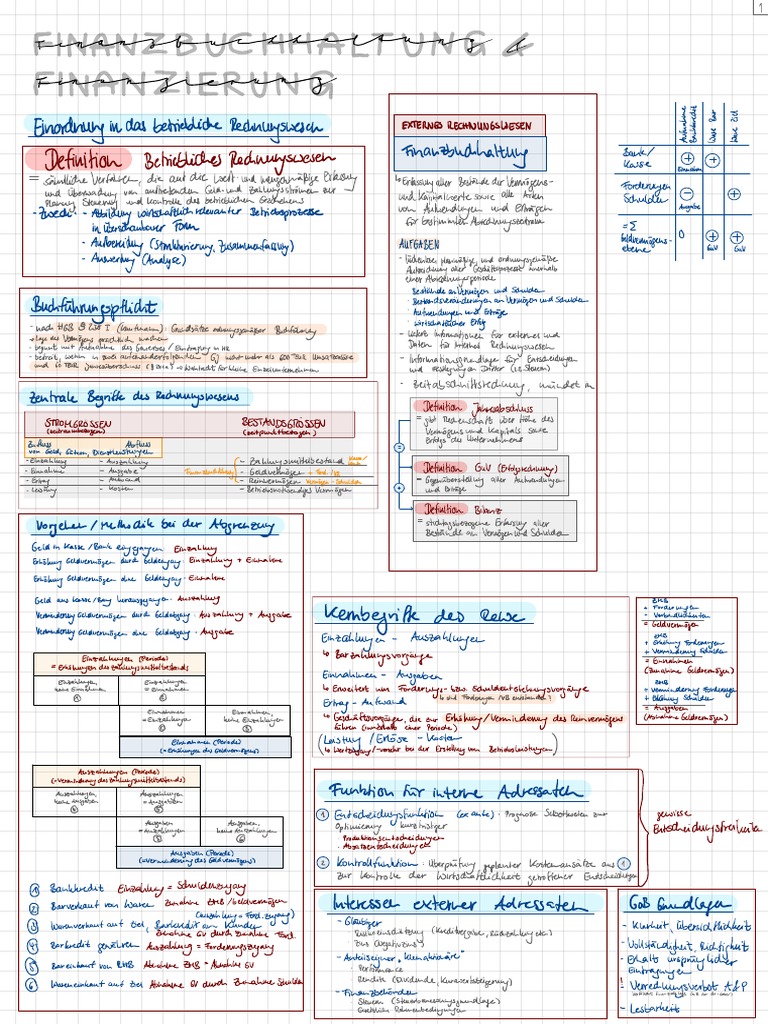 1
FINANZBUCHHALTUNG &
FINANZIERUNG
Finanzbuchhaltung &
Finanzierung
Einordnung in das betriebliche Rechnungswesen
Definition Betriebliches Rechnungswesen
= sämtliche Verfahren, die auf die wert- und mengenmäßige Erfassung
und Überwachung von auftretenden Geld- und Zahlungsströmen zur
Planung, Steuerung und Kontrolle des betrieblichen Geschehens
Zweck: - Abbildung wirtschaftlich relevanter Betriebsprozesse
in überschaubarer Form
- Aufbereitung (Strukturierung, Zusammenfassung)
- Auswertung (Analyse)
Buchführungspflicht
- nach HGB § 238 I (Kaufmann): Grundsätze ordnungsgemäßer Buchführung
- Lage des Vermögens ersichtlich machen
- beginnt mit Aufnahme des Gewerbes / Eintragung in HR
Zentrale Begriffe des Rechnungswesens
STROMGRÖSSEN
(zeitraumbezogen)
BESTANDSGRÖSSEN
(zeitpunktbezogen)
Zufluss Abfluss
von Geld, Gütern, Dienstleistungen
- Einzahlung - Auszahlung - Zahlungsmittelbestand
- Einnahme - Ausgabe - Geldvermögen
- Ertrag - Aufwand - Reinvermögen
- Leistung - Kosten - Betriebsnotwendiges Vermögen
Vorgehen / Methodik bei der Abgrenzung
Geld in Kasse/Bank eingegangen: Einzahlung
Erhöhung Geldvermögen durch Geldeingang: Einzahlung + Einnahme
Erhöhung Geldvermögen ohne Geldeingang: Einnahme
Geld aus Kasse/Bank herausgegangen: Auszahlung
Verminderung Geldvermögen durch Geldabgang: Auszahlung + Ausgabe
Verminderung Geldvermögen ohne Geldabgang: Ausgabe
Einzahlungen (Periode)
= Erhöhungen des Zahlungsmittelbestands
Einzahlungen, Einzahlungen
keine Einnahmen = Einnahmen
①
Einnahmen Einnahmen,
= Einzahlungen keine Einzahlungen
② ③
Einnahmen (Periode)
(= Erhöhungen des Geldvermögens)
Auszahlungen (Periode)
(= Verminderung des Zahlungsmittelbestands)
Auszahlungen Auszahlungen
keine Ausgaben = Ausgaben
④ ⑤
Ausgaben Ausgaben,
= Auszahlungen keine Auszahlungen
⑤ ⑥
Ausgaben (Periode)
(= Verminderung des Geldvermögens)
① Barkredit Einzahlung = Schuldenzugang
② Barverkauf von Waren Zunahme ZMB / Geldvermögen
③ Warenverkauf auf Ziel,
④ Barkredit gewähren Auszahlung = Forderungszugang
⑤ Bareinkauf von RHB Abnahme ZMB = Abnahme GV
⑥ Wareneinkauf auf Ziel Abnahme GV durch Zunahme Schulden
EXTERNES RECHNUNGSWESEN
Finanzbuchhaltung
↳ Erfassung aller Bestände der Vermögens-
und Kapitalwerte sowie alle Arten
von Aufwendungen und Erträgen
für bestimmten Abrechnungszeitraum
AUFGABEN
- lückenlose, planmäßige und ordnungsgemäße
Aufzeichnung aller Geschäftsprozesse innerhalb
einer Abrechnungsperiode
Bestände an Vermögen und Schulden
Bestandsveränderungen an Vermögen und Schulden
Aufwendungen und Erträge
wirtschaftlicher Erfolg
- liefert Informationen für externes und
Daten für internes Rechnungswesen
- Informationsgrundlage für Entscheidungen
- Zeitabschnittsrechnung, mündet in
Definition Jahresabschluss
= gibt Rechenschaft über Höhe des
Vermögens und Kapitals sowie
Erfolgs des Unternehmens
=
Definition GuV (Erfolgsrechnung)
= Gegenüberstellung aller Aufwendungen
und Erträge
+
Definition Bilanz
= stichtagsbezogene Erfassung aller
Bestände an Vermögen und Schulden
Aufnahme Bankkredit
Ware Bar
Ware Ziel
Bank/ + +
Kasse Einnahme
Forderungen - +
Schulden Ausgabe
= Σ 0 + +
Geldvermögens- GuV GuV
ebene
Kernbegriffe des ReWe
Einzahlungen - Auszahlungen
↳ Barzahlungsvorgänge
Einnahmen - Ausgaben
↳ Erweitert um Forderungs- bzw. Schuldentstehungsvorgänge
Ertrag - Aufwand
↳ Geschäftsvorgänge, die zur Erhöhung/Verminderung des Reinvermögens
führen (innerhalb einer Periode)
(Leistung / Erlöse - Kosten
bei der Erstellung von Betriebsleistungen)
ZMB
+ Forderungen
- Verbindlichkeiten
= Geldvermögen
ZMB
+ Erhöhung Forderungen
+ Verminderung Schulden
= Einnahmen
(Zunahme Geldvermögen)
ZMB
+ Verminderung Forderunge
+ Erhöhung Schulden
= Ausgaben
(Abnahme Geldvermögen)
Funktion für interne Adressaten
① Entscheidungsfunktion (ex ante): Prognose Selbstkosten zur
Optimierung kurzfristiger
- Produktionsentscheidungen
- Absatzentscheidungen
② Kontrollfunktion: Überprüfung geplanter Kostenansätze aus ①
zur Kontrolle der Wirtschaftlichkeit getroffener Entscheidungen
gewisse
Entscheidungsfreiheiten
Interessen externer Adressaten
- Gläubiger
- Anteilseigner, "Kleinaktionäre"
- Performance
Rendite (Dividende, Kurswertsteigerung)
- Finanzbehörden
Steuern (Steuerbemessungsgrundlage)
Gesetzliche Rahmenbedingungen
GoB Grundlagen
- Klarheit, Übersichtlichkeit
- Vollständigkeit, Richtigkeit
- Erhalt ursprünglicher
Eintragungen
! Verrechnungsverbot A & P
- Lesbarkeit